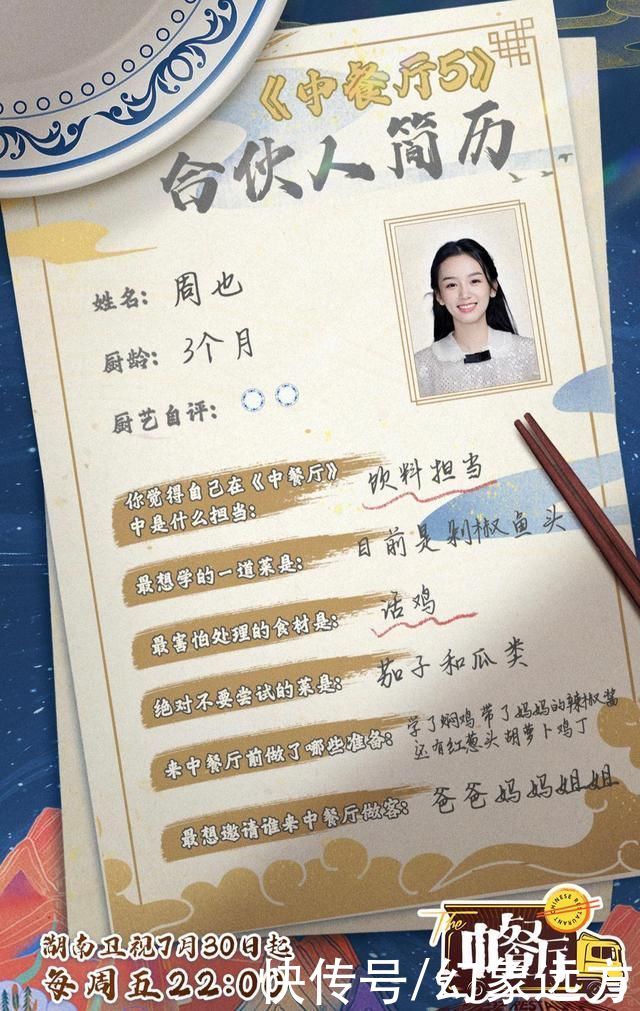 《中餐厅5》
合伙人简历
姓名: 周也
厨龄: 3个月
厨艺自评:
你觉得自己在《中餐厅》
中是什么担当: 饮料担当
最想学的一道菜是: 目前是剁椒鱼头
最害怕处理的食材是: 活鸡
绝对不要尝试的菜是: 茄子和瓜类
来中餐厅前做了哪些准备: 学了焖鸡带了妈妈的辣椒酱
还有红葱头胡萝卜鸡丁
最想邀请谁来中餐厅做客: 爸爸妈妈姐姐
湖南卫视7月30日起
每周五22:00
The
中餐厅
CHINESE RESTAURANT
快传号/幻象远方